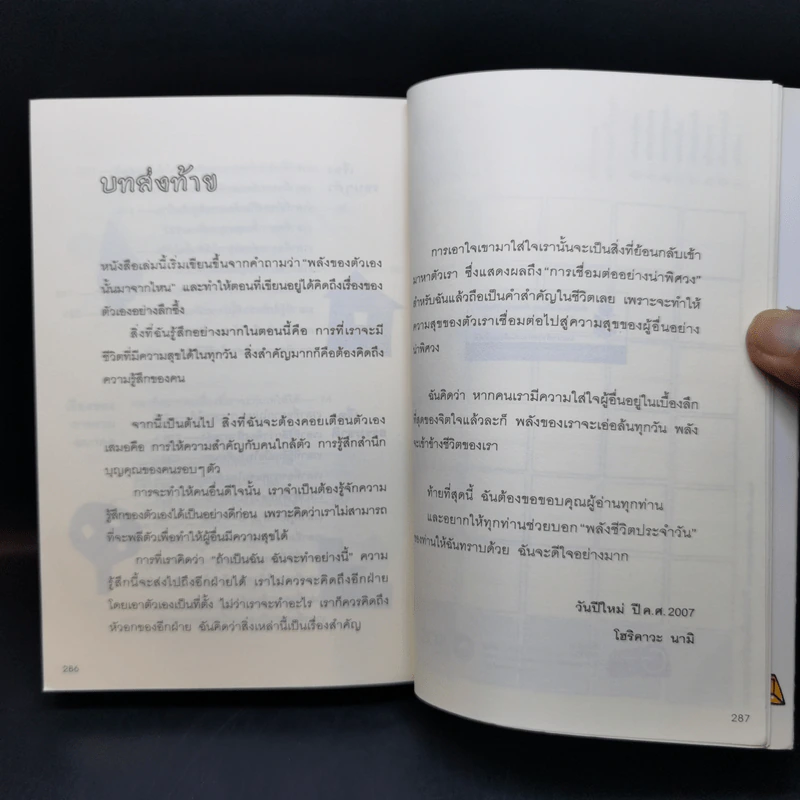 บทส่งท้าย
หนังสือเล่มนี้เริ่มเขียนขึ้นจากคำถามว่า "พลังของตัวเอง
นั้นมาจากไหน" และทำให้ตอนที่เขียนอยู่ได้คิดถึงเรื่องของ
ตัวเองอย่างลึกซึ้ง
สิ่งที่ฉันรู้สึกอย่างมากในตอนนี้คือ การที่เราจะมี
ชีวิตที่มีความสุขได้ในทุกวัน สิ่งสำคัญมากก็คือต้องคิดถึง
ความรู้สึกของคน
จากนี้เป็นต้นไป สิ่งที่ฉันจะต้องคอยเตือนตัวเอง
เสมอคือ การให้ความสำคัญกับคนใกล้ตัว การรู้สึกสำนึก
บุญคุณของคนรอบๆ ตัว
การจะทำให้คนอื่นดีใจนั้น เราจำเป็นต้องรู้จักความ
รู้สึกของตัวเองได้เป็นอย่างดีก่อน เพราะคิดว่าเราไม่สามารถ
ที่จะพลีตัวเพื่อทำให้ผู้อื่นมีความสุขได้
การที่เราคิดว่า "ถ้าเป็นฉัน ฉันจะทำอย่างนี้" ความ
รู้สึกนี้จะส่งไปถึงอีกฝ่ายได้ เราไม่ควรจะคิดถึงอีกฝ่าย
โดยเอาตัวเองเป็นที่ตั้ง ไม่ว่าเราจะทำอะไร เราก็ควรคิดถึง
หัวอกของอีกฝ่าย ฉันคิดว่าสิ่งเหล่านี้เป็นเรื่องสำคัญ
286
การเอาใจเขามาใส่ใจเรานั้นจะเป็นสิ่งที่ย้อนกลับเข้า
มาหาตัวเรา ซึ่งแสดงผลถึง "การเชื่อมต่ออย่างน่าพิศวง"
สำหรับฉันแล้วถือเป็นคำสำคัญในชีวิตเลย เพราะจะทำให้
ความสุขของตัวเราเชื่อมต่อไปสู่ความสุขของผู้อื่นอย่าง
น่าพิศวง
ฉันคิดว่า หากคนเรามีความใส่ใจผู้อื่นอยู่ในเบื้องลึก
ที่สุดของจิตใจแล้วละก็ พลังของเราจะเอ่อล้นทุกวัน พลัง
จะเข้าข้างชีวิตของเรา
ท้ายที่สุดนี้ ฉันต้องขอขอบคุณผู้อ่านทุกท่าน
และอยากให้ทุกท่านช่วยบอก "พลังชีวิตประจำวัน"
ของท่านให้ฉันทราบด้วย ฉันจะดีใจอย่างมาก
วันปีใหม่ ปี ค.ศ. 2007
โฮริคาวะ นามิ
287